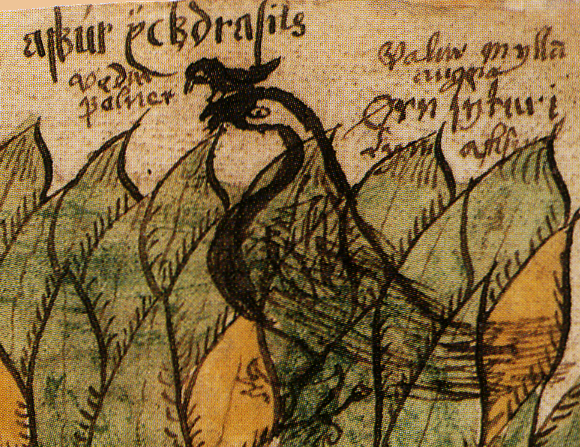 askur ÿckdrasils
vedur
polner
Valur mylla
augna
Orn sytur i